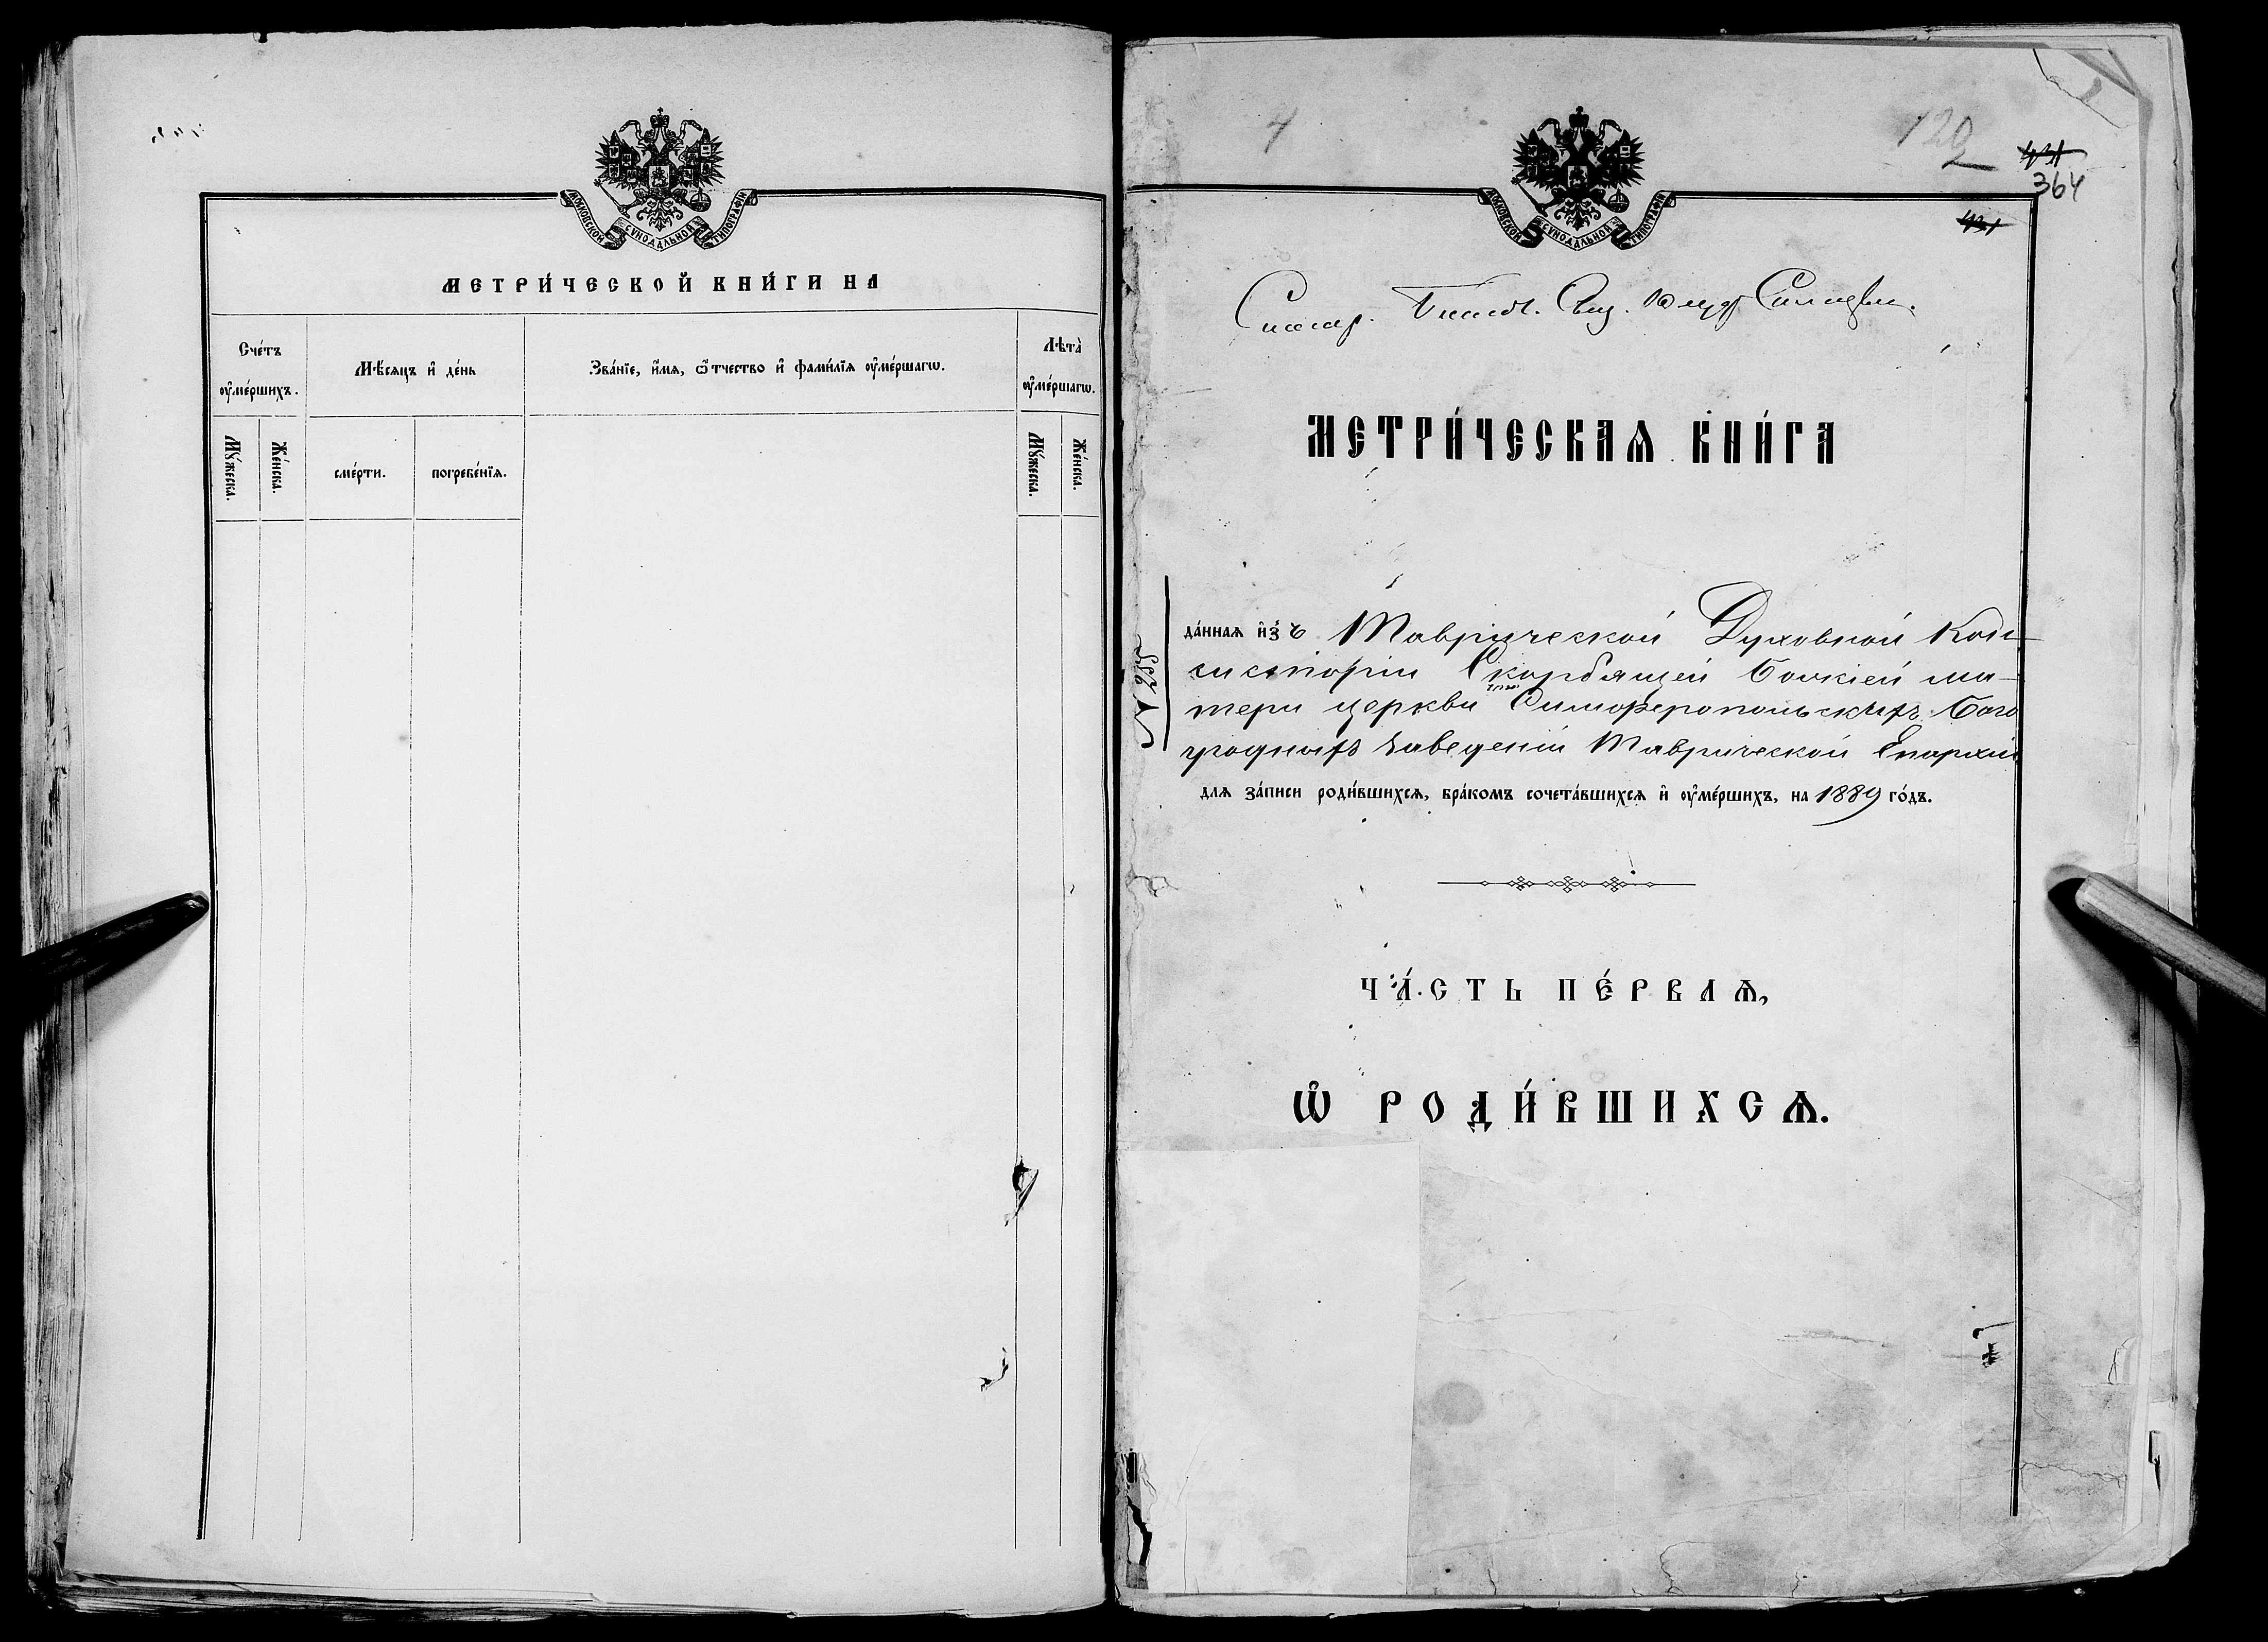 МОСКОВСКОЙ СѴНОДАЛЬНОЙ ТИПОГРАФІИ
МЕТРИ́ЧЕСКОЙ КНИ́ГИ НА
Сче́тъ ᲂу҆ме́ршихъ.
Мѣ́сяцъ и҆ де́нь
Зва́нїе, и҆́мѧ, ѻ҆́тчество и҆ фами́лїѧ ᲂу҆ме́ршагѡ.
Лѣта̀ ᲂу҆ме́ршагѡ.
Мꙋ́жеска.
Же́нска.
сме́рти.
погребе́нїѧ.
Мꙋ́жеска.
Же́нска.
4
120
364
МОСКОВСКОЙ СѴНОДАЛЬНОЙ ТИПОГРАФІИ
МЕТРИ́ЧЕСКАѦ КНИ́ГА
N 255
да́ннаѧ и҆з̾ Таврической Духовной Кон-
систоріи Скорбящей Божіей ма-
тери церкви при Симферопольскихъ Бого
угодныхъ заведеній Таврической Епархіи
длѧ за́писи роди́вшихсѧ, бра́комъ сочета́вшихсѧ и҆ ᲂу҆ме́ршихъ, на 1889 го́дъ.
ЧА́СТЬ ПЕ́РВАѦ,
Ѡ҆ РОДИ́ВШИХСѦ.